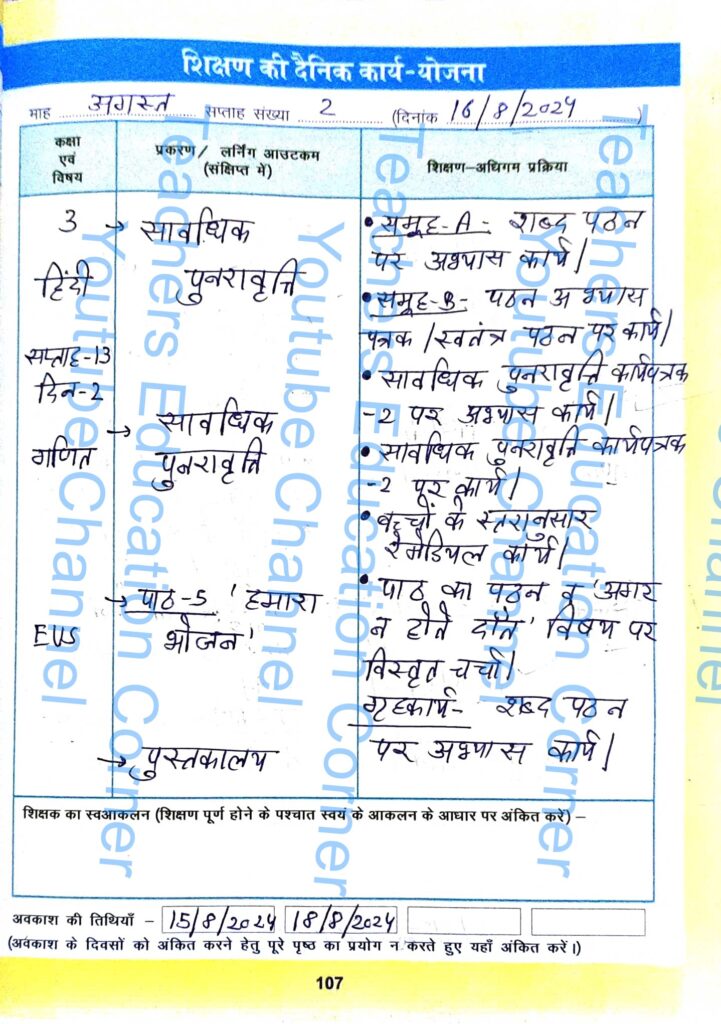 शिक्षण की दैनिक कार्य-योजना
माह अगस्त सप्ताह संख्या 2 (दिनांक 16/8/2024)
कक्षा एवं विषय
प्रकरण/ लर्निंग आउटकम (संक्षिप्त में)
शिक्षण-अधिगम प्रक्रिया
3
हिंदी
सप्ताह-13
दिन-2
गणित
EVS
→ सावधिक
पुनरावृत्ति
→ सावधिक
पुनरावृत्ति
→ पाठ-5 'हमारा
भोजन'
→ पुस्तकालय
• समूह-A- शब्द पठन
पर अभ्यास कार्य।
• समूह-B- पठन अभ्यास
पत्रक /स्वतंत्र पठन पर कार्य।
• सावधिक पुनरावृत्ति कार्यपत्रक
-2 पर अभ्यास कार्य।
• सावधिक पुनरावृत्ति कार्यपत्रक
-2 पर कार्य।
• बच्चों के स्तरानुसार
रेमेडियल कार्य।
• पाठ का पठन व 'अगर
न होते दाँत' विषय पर
विस्तृत चर्चा।
गृहकार्य- शब्द पठन
पर अभ्यास कार्य।
शिक्षक का स्वआकलन (शिक्षण पूर्ण होने के पश्चात स्वयं के आकलन के आधार पर अंकित करें) –
अवकाश की तिथियाँ – 15/8/2024 18/8/2024
(अवकाश के दिवसों को अंकित करने हेतु पूरे पृष्ठ का प्रयोग न करते हुए यहाँ अंकित करें।)
107
Teachers Education Corner
Youtube Channel
Teachers Education Corner
Youtube Channel
Teachers Education Corner
Youtube Channel